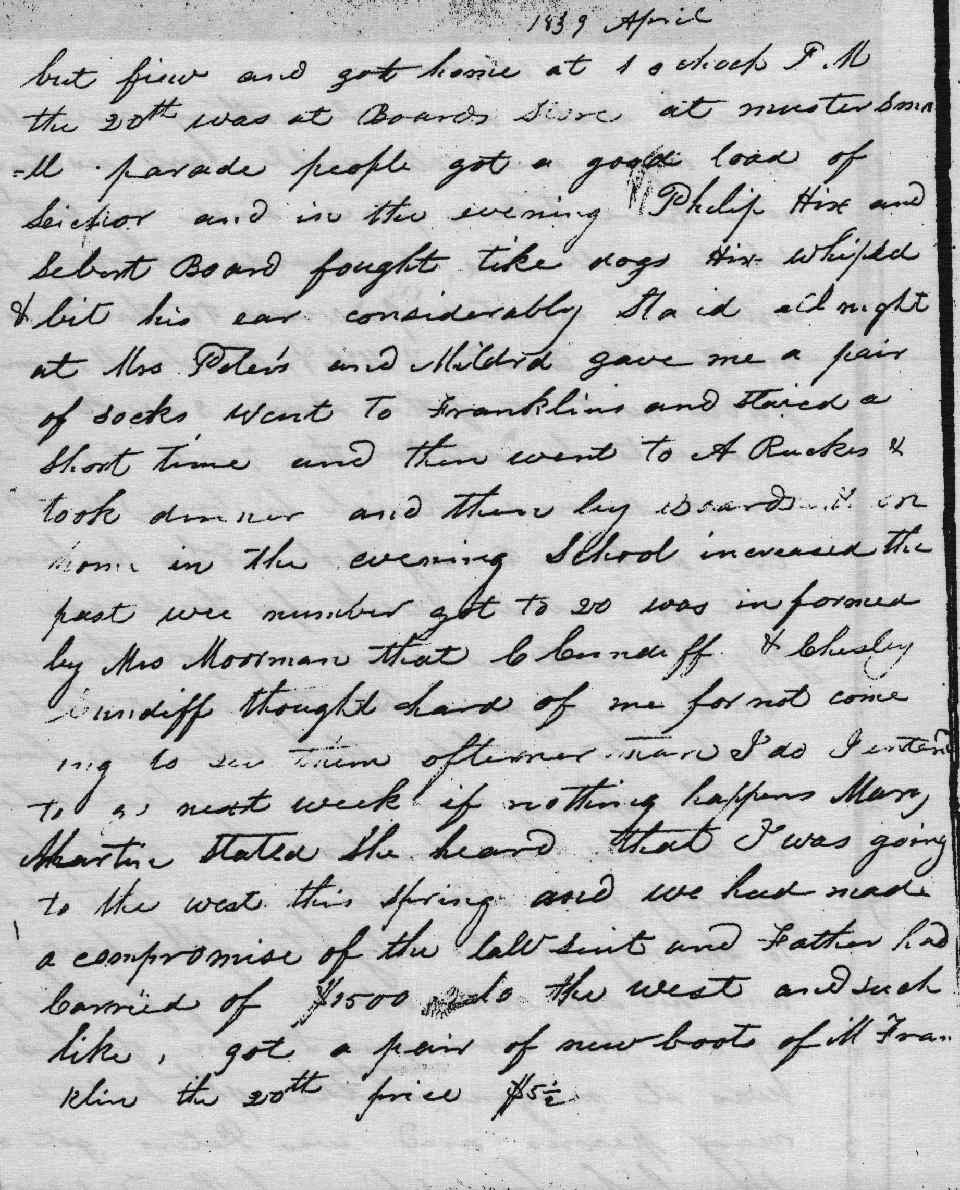 1839 April
but fiew and got home at 1 o clock P.M
the 20th was at Boards Store at muster Sma
-ll parade people got a good load of
Seichor and in the evening Philip Hix and
Sebert Board fought like dogs Hix whiped
& bit his ear considerably Sta id all night
at Mrs Peters and Mildrd gave me a pair
of socks, Went To Franklins and staied a
Short time and then went to A Ruckes &
took dinner and then by Boards & on
home in the evening School increased the
past wee number got to 20 was informed
by Mrs Moorman that C Cundiff & Chesley
Cundiff thought hard of me for not come
ing to see them oftener than I do I enten
To go next week if nothing happens Mary
Martin Stated She heard that I was going
to the west this Spring and we had made
a compromise of the law suit and Father had
Carried of $1500 to the west and such
like, got a pair of new boots of M Fra
klin the 20th price $5½